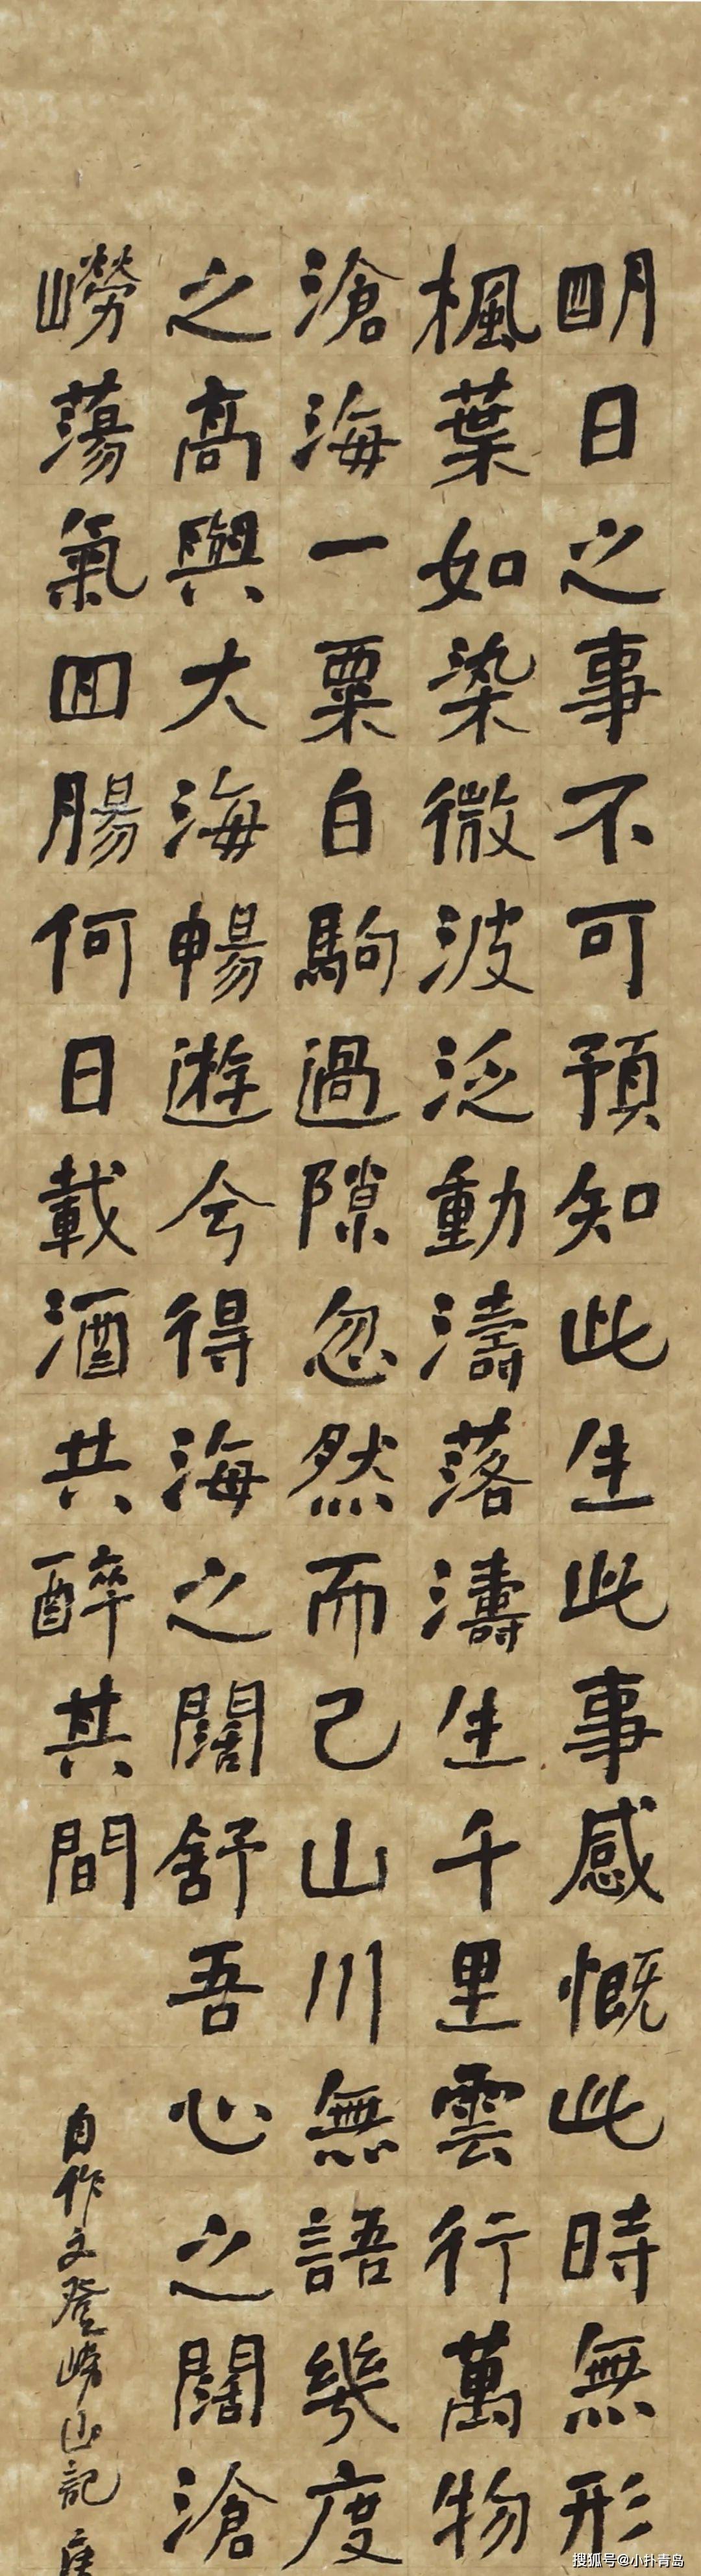 明日之事不可預知此生此事感慨此時無形
楓葉如染微波泛動濤落濤生千里雲行萬物
滄海一粟白駒過隙忽然而已山川無語幾度
之高與大海暢遊兮得海之闊舒吾心之闊滄
嶗蕩氣回腸何日載酒共醉其間
自作文登嶗山記
搜狐号@小扑青岛